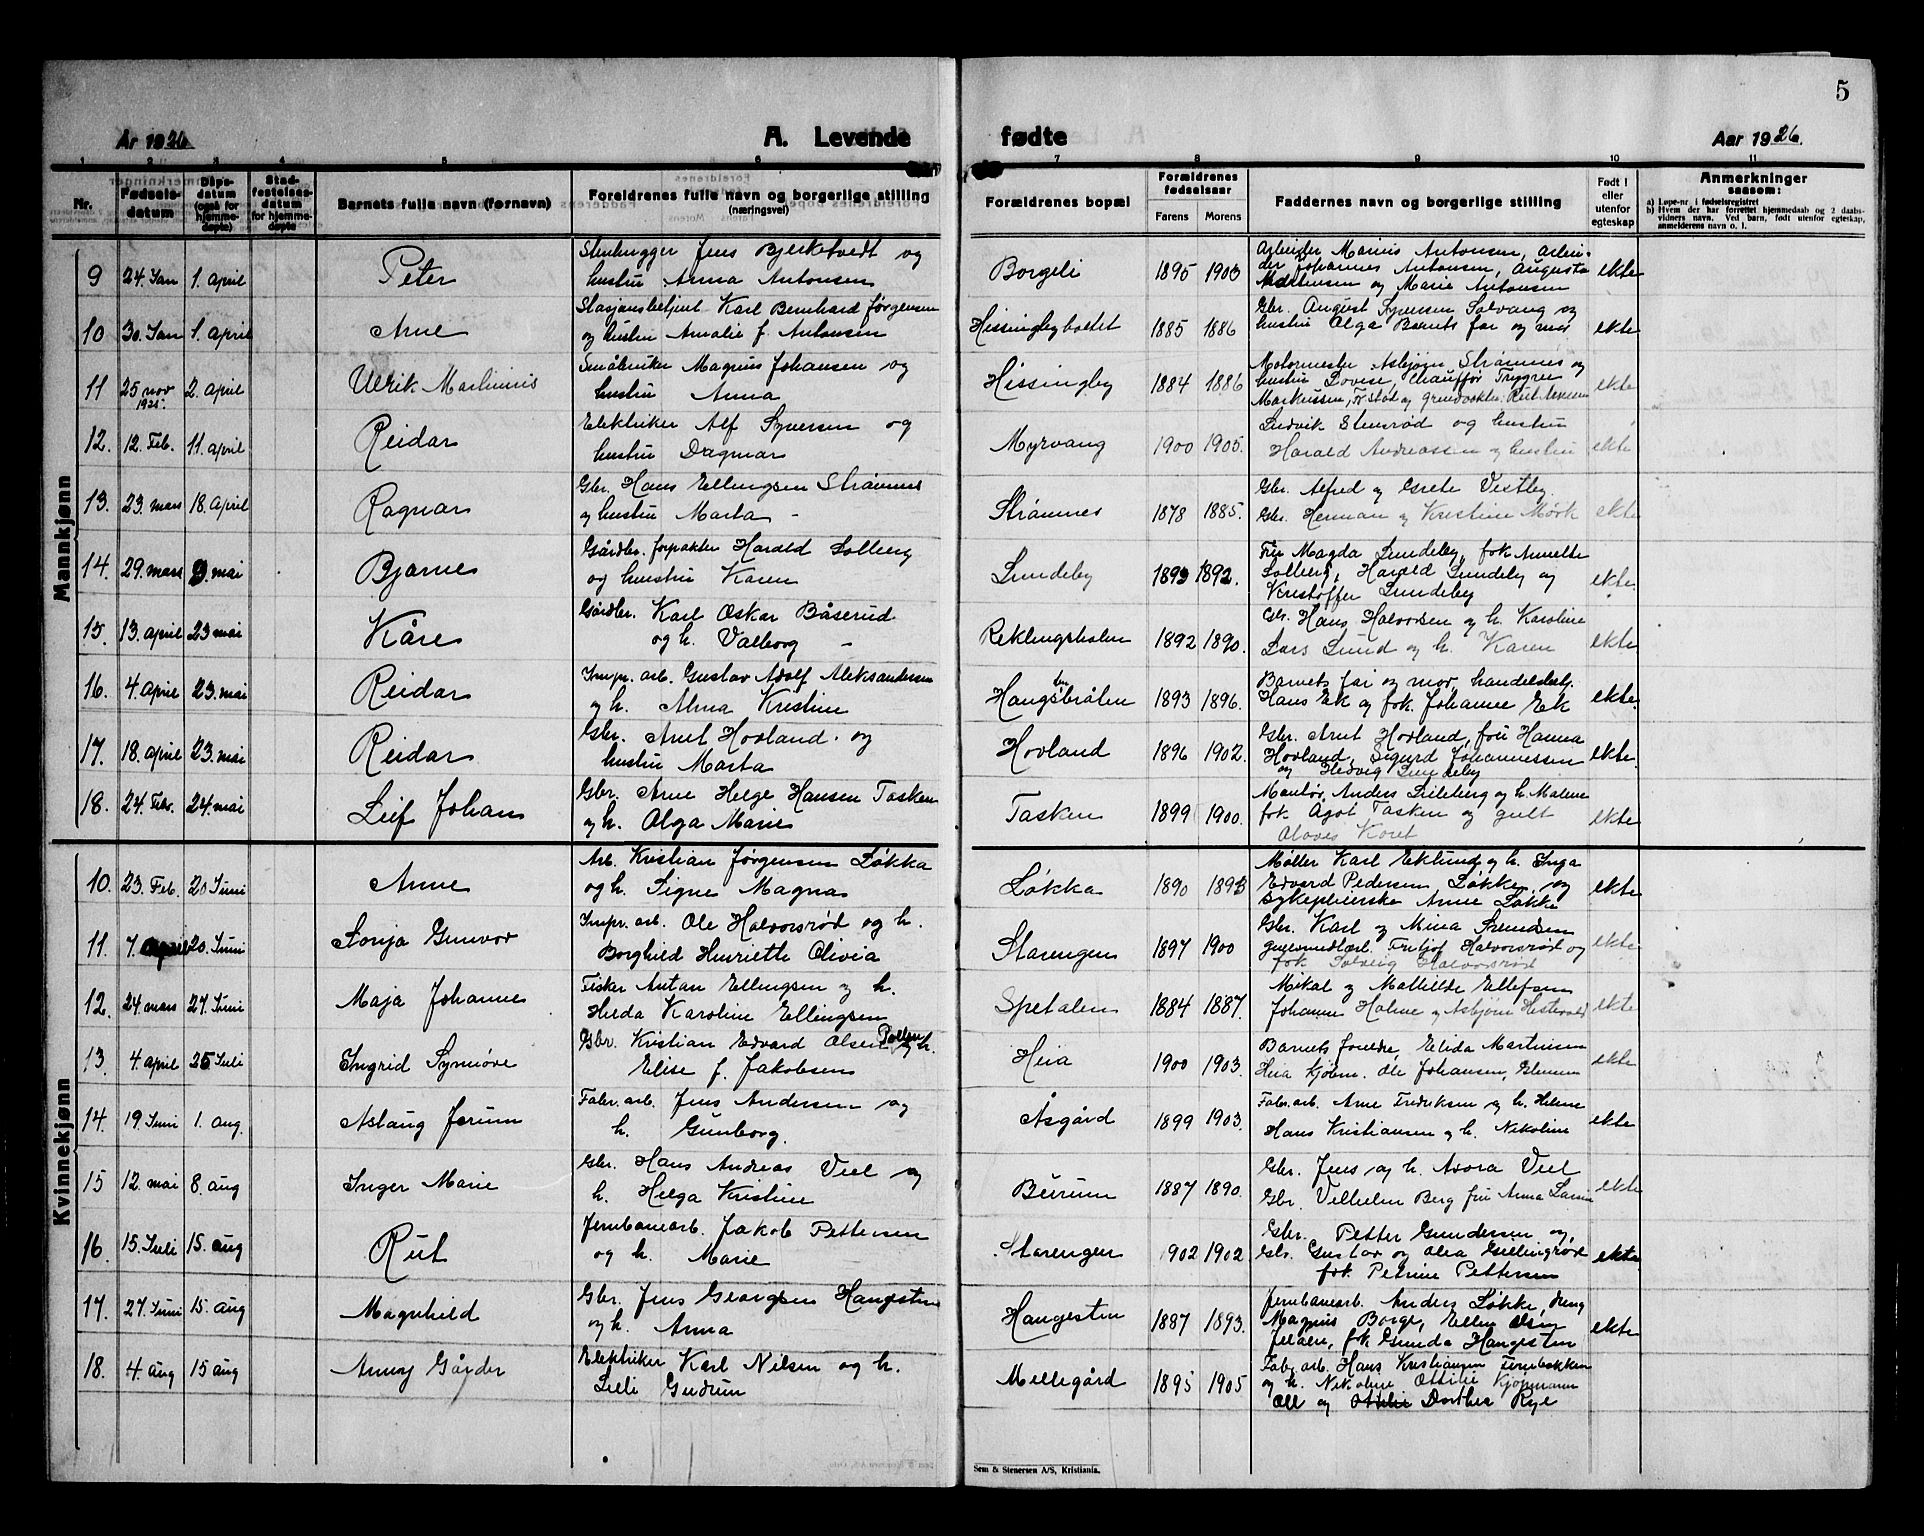 5
År 1926. A. Levende fødte Aar 1926.
1 2 3 4 5 6 7 8 9 10 11
Nr. Fødsels-datum Dåps-datum (også for hjemme-døpte) Stad-festelses-datum for hjemme-døpte Barnets fulle navn (fornavn) Foreldrenes fulle navn og borgerlige stilling (næringsvei) Forældrenes bopæl Forældrenes fødselsaar Farens Morens Faddernes navn og borgerlige stilling Født i eller utenfor egteskap Anmerkninger saasom:
a) Løpe-nr. i fødselsregistret
b) Hvem der har forrettet hjemmedaab og 2 daabs-
vidners navn. Ved barn, født utenfor egteskap,
anmelderens navn o. l.
Mannkjønn
9 24. Jan 1. april Peter Stenhugger Jens Bjerketvedt og
hustru Anna Antonsen Borgeli 1895 1903 Arbeider Marius Antonsen, arbei-
der Johannes Antonsen, Augusta
og Marie Antonsen ekte
10 30. Jan 1. april Arne Stasjonsbetjent Karl Bernhard Jørgensen
og hustru Amalie f. Antonsen Hissingbyholtet 1885 1886 Gbr. August Syversen Solvang og
hustru Olga Barnets far og mor ekte
11 25 nov 1925. 2. april Ulrik Martinius Småbruker Magnus Johansen og
hustru Anna Hissingby 1884 1886 Motormester Asbjørn Strømnes og
hustru Lovise, Chauffør Trygve
Markussen, og ekte
12. 12. Feb. 11. april Reidar Elektriker Alf Syversen og
hustru Dagmar Myrvang 1900 1905. Ludvik Stensrød og hustru
Harald Andreassen og hustru ekte
13. 23. mars 18. april Ragnar Gbr. Hans Ellingsen Strømnes
og hustru Marta - Strømnes 1878 1885. Gbr. Alfred og Grete Vestby.
Gbr. Herman og Kristine Mørk ekte
14. 29. mars 9. mai Bjarne Gårdbr. forpakter Harald Solberg
og hustru Karen Sundeby 1893 1892. Fru Magda Sundeby, frk Annette
Solberg, Harald Sundeby og
Kristoffer Sundeby ekte.
15. 13. april 23 mai Kåre Gårdbr. Karl Oskar Båserud
og h. Valborg - Reklingsholm 1892 1890. Gbr. Hans Halvorsen og h. Karoline
Lars Lund og h. Karen ekte
16. 4. april 23. mai Reidar Impr. arb. Gustav Adolf Aleksandersen
og h. Alma Kristine 1893 1896. Barnets far og mor, handelsbetj.
Hans Ek og frk. Johanne Ek ekte.
17. 18. april 23. mai Reidar Gbr. Arnt Hovland. og
hustru Marta Hovland 1896 1902. Gbr. Arnt Hovland, fru Hanna
Hovland, Sigurd Johannessen
og Hedvig Sundeby ekte.
18. 24. Febr. 24. mai Leif Johan Gbr. Arne Helge Hansen Tasken
og h. Olga Marie Tasken 1899 1900. Anders Lileberg og h. Malene
frk Agot Tasken og
ekte
Kvinnekjønn
10. 23. Feb. 20 Juni Anne Arb. Kristian Jørgensen Løkka
og h. Signe Magna Løkka 1890 1893 Møller Karl Eklund og h. Inga
Edvard Pedersen Løkke, og
sykepleierske Anne Løkke ekte
11. 7. april 20. Juni Sonja Gunvor Impr. arb. Ole Halvorsrød og h.
Borghild Henriette Olivia Starengen 1897 1900 Gbr. Karl og Mina Svendsen
Fritjof Halvorsrød og
frk Solveig Halvorsrød ekte
12. 24 mars 27. Juni Maja Johanne Fisker Anton Ellingsen og h.
Herda Karoline Ellingsen Spetalen 1884 1887. Mikal og Mathilde Ellefsen
Johanne Holme og Asbjørn ekte
13. 4. april 25 Juli Ingrid Synnøve Gbr. Kristian Edvard Olsen og h.
Elise f. Jakobsen Heia 1900 1903. Barnets foreldre, Elida Martinsen
Heia Kjøbm. Ole Johansen, ekte
14. 19. Juni 1. aug. Aslaug Jorun Fabr. arb. Jens Andersen og
h. Gunborg. Åsgård 1899 1903. Fabr. arb. Arne Fredriksen og h. Helene
Hans Kristiansen og h. Nikoline ekte
15 12. mai 8. aug Inger Marie Gbr. Hans Andreas Veel og
h. Helga Kristine Beirum 1887 1890. Gbr. Jens og h. Avora Veel
Gbr. Vilhelm Berg fru Anna Larsen ekte
16. 15. Juli 15. aug Rut Jernbanearb. Jakob Pettersen
og h. Marie Starengen 1902 1902 Gbr. Petter Gundersen og
Gbr. Gustav og Olea Gullingsrød
frk. Petrine Pettersen ekte
17. 27. Juni 15. aug Magnhild Gbr. Jens Georgsen Haugesten
og h. Anna Haugesten 1887 1893. Jernbanearb. Anders Løkke, dreng
Magnus Borge, Ellen Olsen
Jeløen, frk Gunda Haugesten ekte
18. 4 aug 15 aug Anny Gårder Elektriker Karl Nilsen og h.
Lilli Gudrun Mellegård 1895 1905 Fabr. arb. Hans Kristiansen
og h. Nikoline Ottilie Kjøpmann
og Dorthea Rye
Sem & Stenersen A/S, Kristiania.